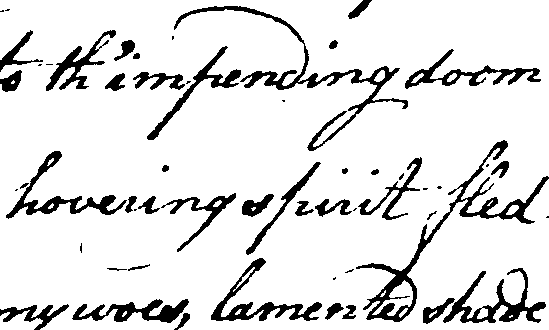 to th'impending doom
hovering spirit fled
my woes, lamented shade